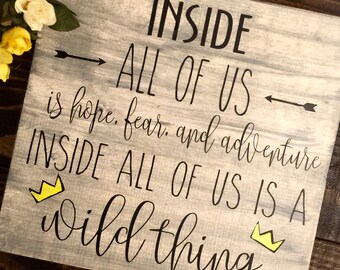 INSIDE
ALL OF US
is hope, fear, and adventure
INSIDE ALL OF US IS A
wild thing